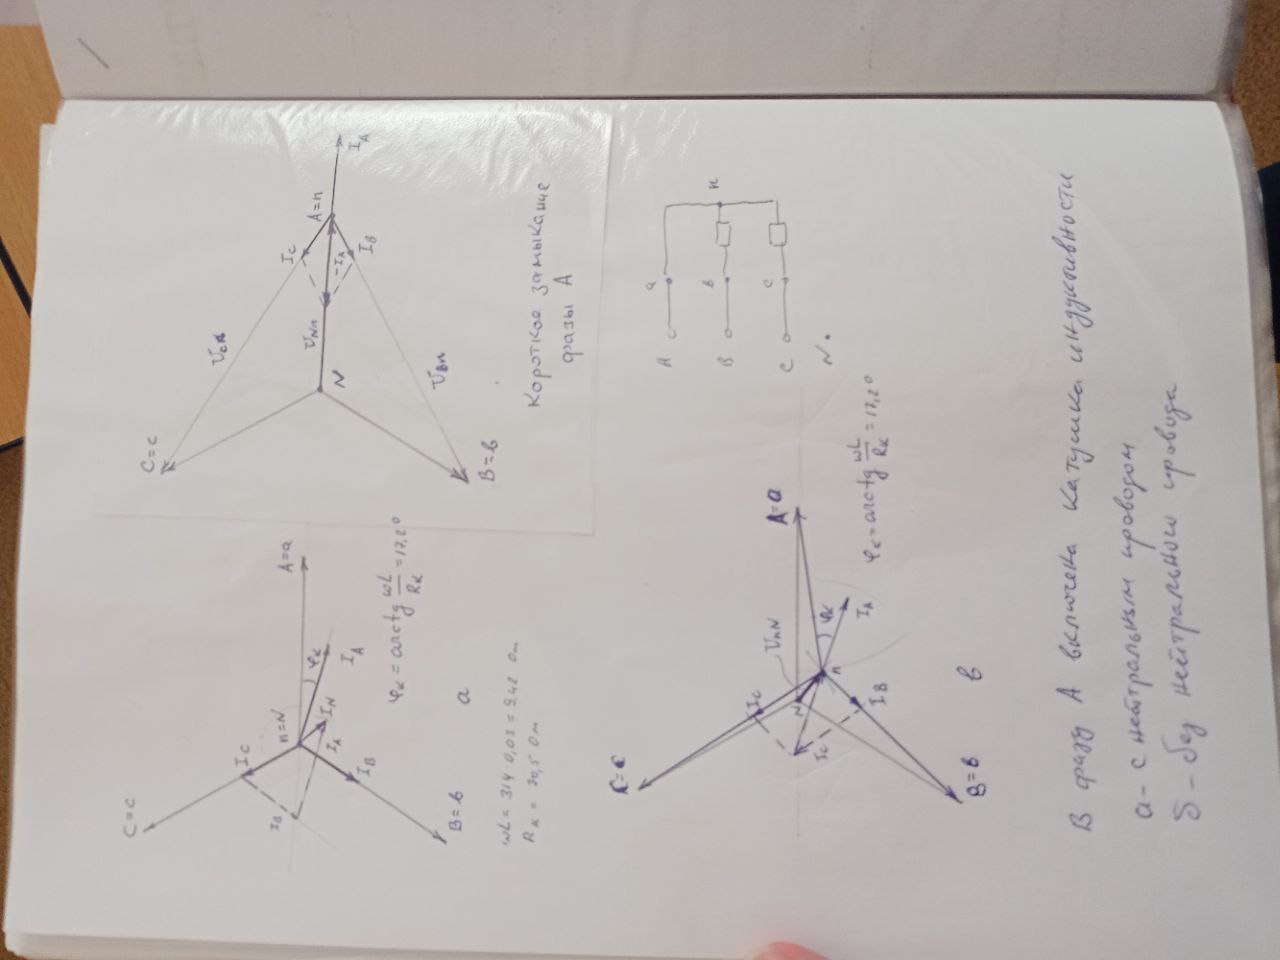 C=c
I_C
I_B
n=N
A=a
φ_K
I_N
I_A
I_A
I_B
φ_K = arctg ωL/R_K = 17,2°
B=в
a
ωL = 314·0,03 = 9.42 Ом
R_K = 30,5 Ом
C=c
U_CA
I_C
U_Nn
A=n
N
-I_A
I_A
I_B
U_Bn
B=в
Короткое замыкание
фазы А
C=c
I_C
U_nN
A=a
N
I_C
n
φ_K
I_A
I_B
φ_K = arctg ωL/R_K = 17,2°
B=в
в
A
a
B
в
н
C
c
N
В фазу А включена катушка индуктивности
а - с нейтральным проводом
б - без нейтрального провода